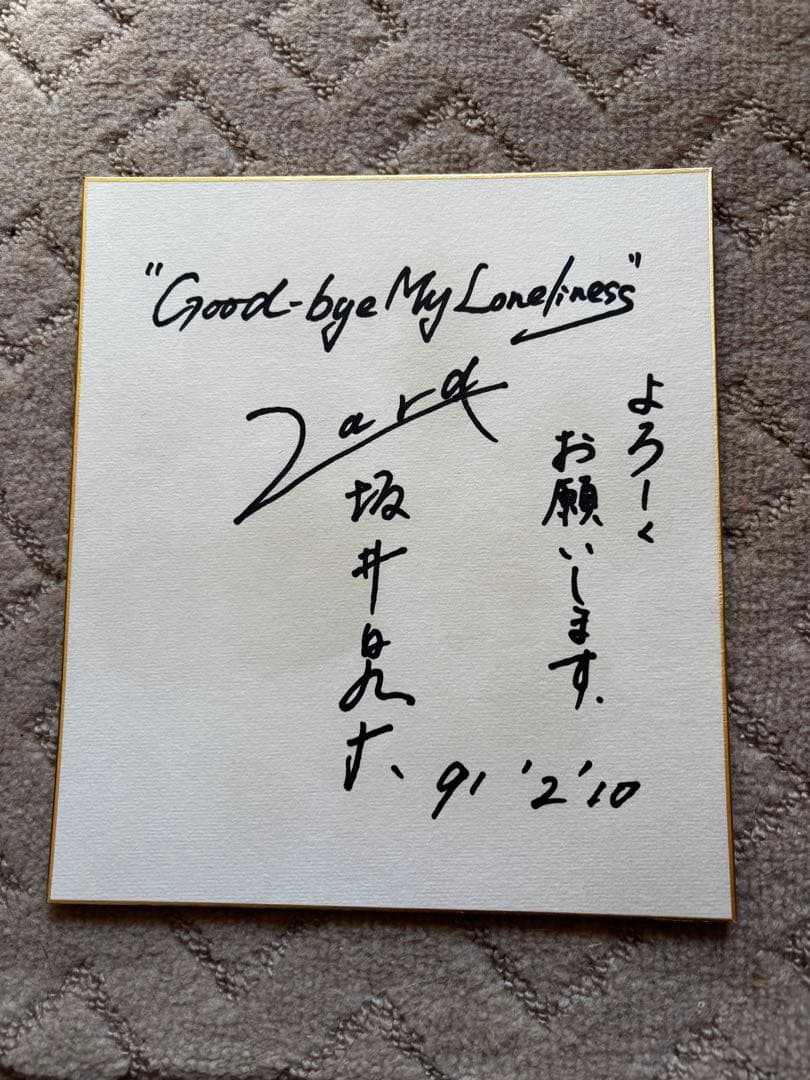 "Good-bye My Loneliness"
Zard
坂井泉水
よろしく
お願いします.
91 '2 '10